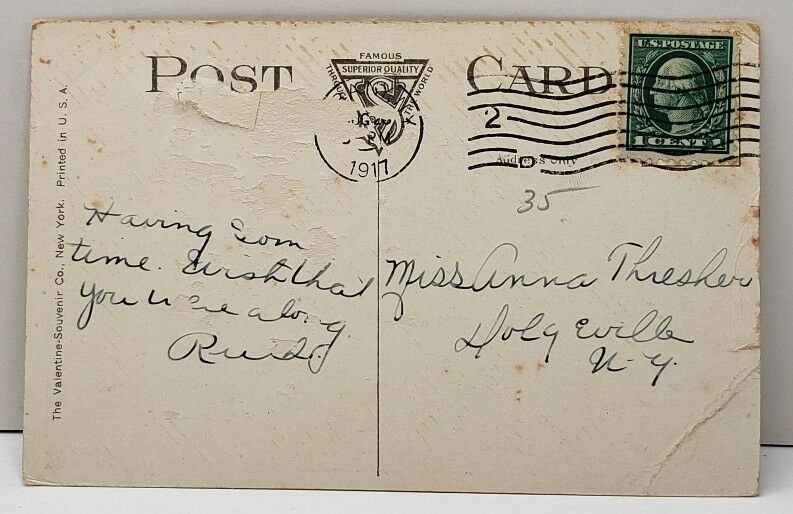 POST CARD
FAMOUS
THROUGHOUT THE WORLD
SUPERIOR QUALITY
AUG
1917
2
D
U.S. POSTAGE
1 CENT 1
Address Only
35
The Valentine-Souvenir Co., New York. Printed in U. S. A.
Having Som
time. Wish that
you were along.
Miss Anna Thresher
Dolgeville
N. Y.